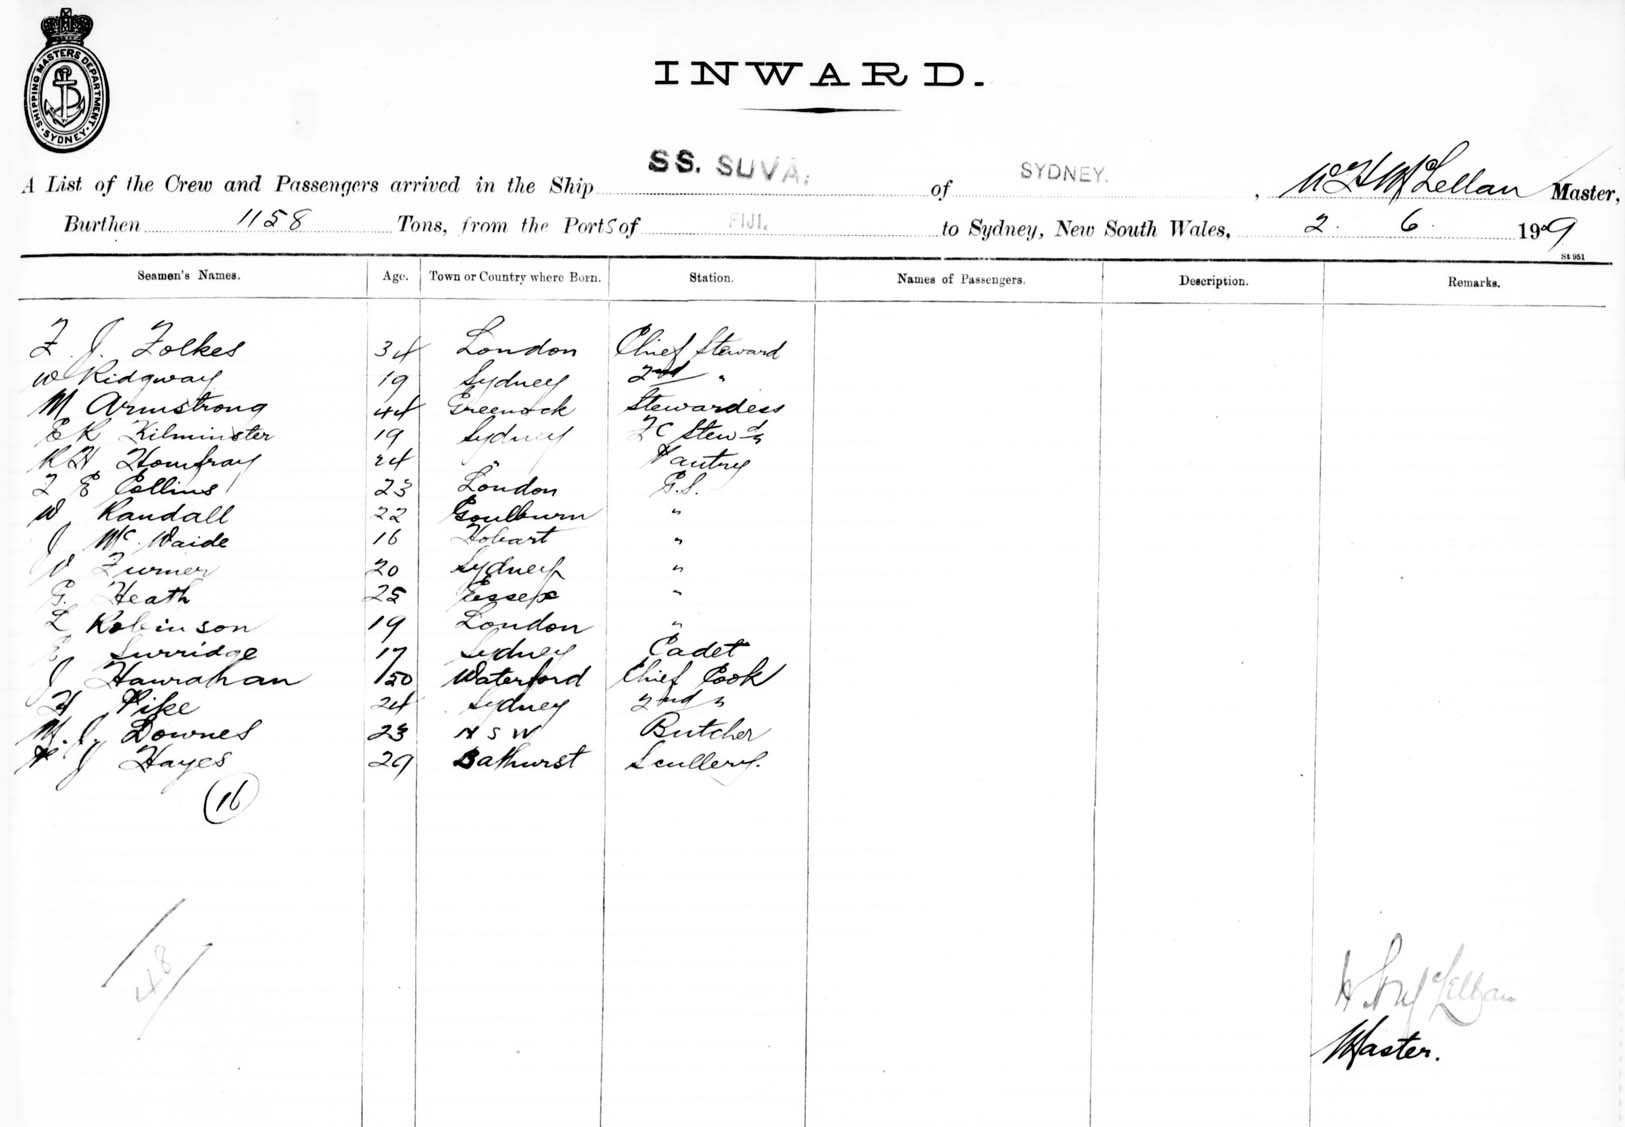 SHIPPING MASTERS DEPARTMENT. SYDNEY.
INWARD.
A List of the Crew and Passengers arrived in the Ship SS. SUVA. of SYDNEY. , W H McLellan Master,
Burthen 1158 Tons, from the Ports of FIJI. to Sydney, New South Wales, 2. 6. 1909
St 951
Seamen's Names. Age. Town or Country where Born. Station. Names of Passengers. Description. Remarks.
F. J. Folkes 34 London Chief Steward
W Ridgway 19 Sydney 2nd "
M Armstrong 44 Greenock Stewardess
E R Kilminster 19 Sydney FC Stewd
R H Homfray 24 " Pantry
F E Collins 23 London G.S.
W Randall 22 Goulburn "
J McWaide 16 Hobart "
W Turner 20 Sydney "
G. Heath 25 Essex "
L Robinson 19 London "
E Surridge 17 Sydney Cadet
J Hanrahan 50 Waterford Chief Cook
H Pike 24 Sydney 2nd "
M. J. Downes 23 N S W Butcher
J Hayes 29 Bathurst Scullery.
16
48
McLellan
Master.